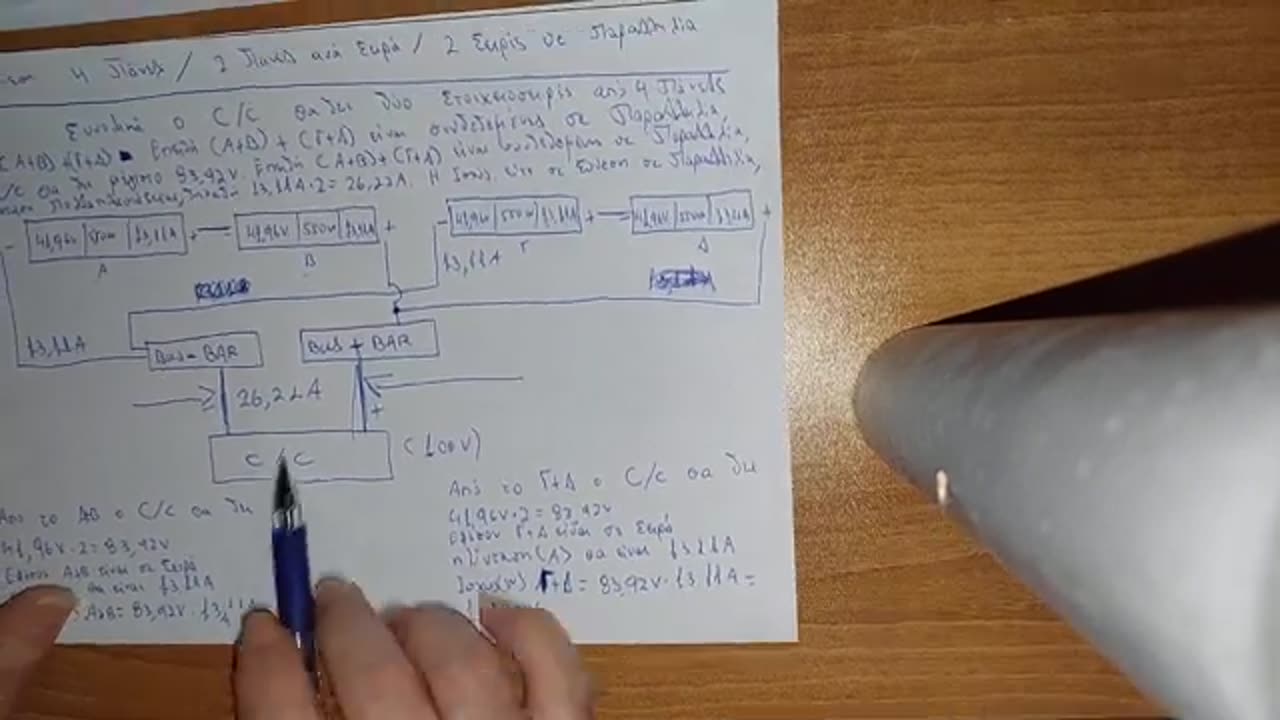 4 Πάνελ / 2 Πάνελ ανά Σειρά / 2 Σειρές σε Παραλληλία
Συνολικά ο C/C θα δει δύο Στοιχειοσειρές από 4 Πάνελς
(A+B) Επειδή (A+B) + (Γ+Δ) είναι συνδεδεμένες σε Παραλληλία,
θα δει 83,92V. Επειδή (A+B)+(Γ+Δ) είναι σε Παραλληλία,
13,11A·2=26,22A. Η Ισχύς σε Σύνδεση σε Παραλληλία,
- 41,96V 550W 13,11A + - 41,96V 550W 13,11A +
- 41,96V 550W 13,11A + - 41,96V 550W 13,11A +
A B Γ Δ
13,11A
13,11A
BUS - BAR BUS + BAR
26,22A +
C/C (100V)
Από το AB ο C/C θα δει
41,96V·2=83,92V
A+B είναι σε Σειρά
θα είναι 13,11A
A+B= 83,92V·13,11A
Από το Γ+Δ ο C/C θα δει
41,96V·2=83,92V
Εφόσον Γ+Δ είναι σε Σειρά
η Ένταση(A) θα είναι 13,11A
Ισχύς(W) Γ+Δ = 83,92V·13,11A =